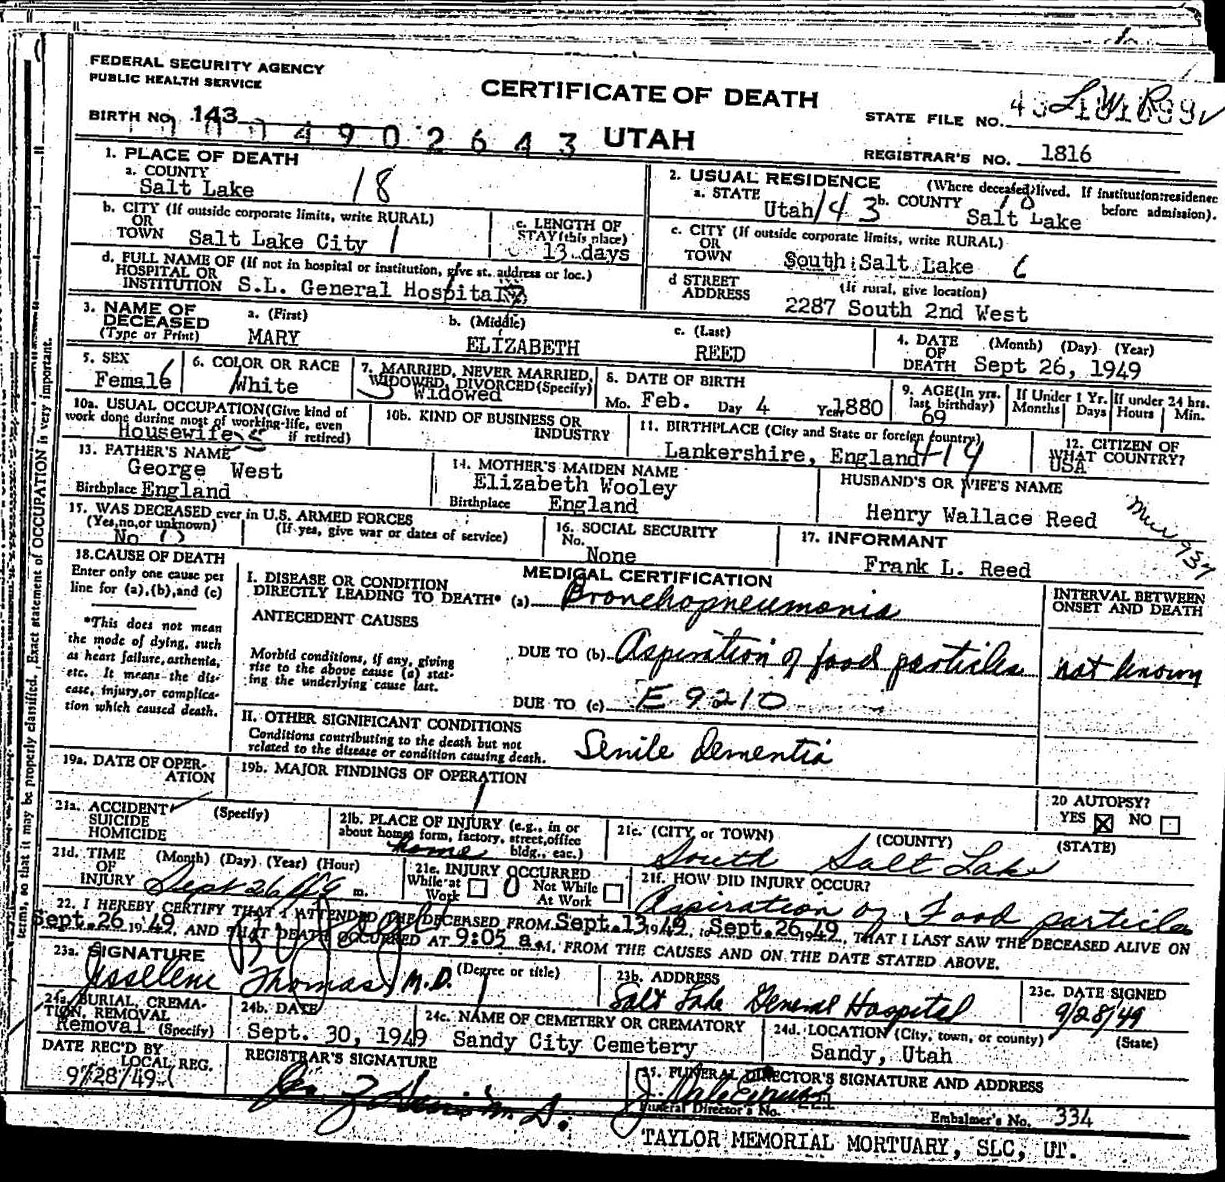 FEDERAL SECURITY AGENCY
PUBLIC HEALTH SERVICE
CERTIFICATE OF DEATH
STATE FILE NO.
BIRTH NO. 143
4902643 UTAH
REGISTRAR'S NO. 1816
1. PLACE OF DEATH
a. COUNTY
Salt Lake 18
2. USUAL RESIDENCE (Where deceased lived. If institution: residence before admission).
a. STATE Utah 143 b. COUNTY 18 Salt Lake
b. CITY (If outside corporate limits, write RURAL)
OR
TOWN Salt Lake City 1
c. LENGTH OF
STAY (this place)
13 days
c. CITY (If outside corporate limits, write RURAL)
OR
TOWN South Salt Lake 6
d. FULL NAME OF (If not in hospital or institution, give st. address or loc.)
HOSPITAL OR
INSTITUTION S.L. General Hospital
d STREET (If rural, give location)
ADDRESS 2287 South 2nd West
3. NAME OF
DECEASED
(Type or Print)
a. (First)
MARY
b. (Middle)
ELIZABETH
c. (Last)
REED
4. DATE (Month) (Day) (Year)
OF
DEATH Sept 26, 1949
5. SEX
Female
6. COLOR OR RACE
White
7. MARRIED, NEVER MARRIED,
WIDOWED, DIVORCED (Specify)
Widowed
8. DATE OF BIRTH
Mo. Feb. Day 4 Year 1880
9. AGE (In yrs.
last birthday)
69
If Under 1 Yr.
Months Days
If under 24 hrs.
Hours Min.
10a. USUAL OCCUPATION (Give kind of
work done during most of working life, even
if retired)
Housewife
10b. KIND OF BUSINESS OR
INDUSTRY
11. BIRTHPLACE (City and State or foreign country)
Lankershire, England 414
12. CITIZEN OF
WHAT COUNTRY?
USA
13. FATHER'S NAME
George West
Birthplace England
14. MOTHER'S MAIDEN NAME
Elizabeth Wooley
Birthplace England
HUSBAND'S OR WIFE'S NAME
Henry Wallace Reed
15. WAS DECEASED ever in U.S. ARMED FORCES
(Yes, no, or unknown) (If yes, give war or dates of service)
No 0
16. SOCIAL SECURITY
No.
None
17. INFORMANT
Frank L. Reed
18. CAUSE OF DEATH
Enter only one cause per
line for (a), (b), and (c)
*This does not mean
the mode of dying, such
as heart failure, asthenia,
etc. It means the dis-
ease, injury, or complica-
tion which caused death.
MEDICAL CERTIFICATION
INTERVAL BETWEEN
ONSET AND DEATH
I. DISEASE OR CONDITION
DIRECTLY LEADING TO DEATH* (a) Bronchopneumonia
ANTECEDENT CAUSES
Morbid conditions, if any, giving
rise to the above cause (a) stat-
ing the underlying cause last.
DUE TO (b) Aspiration of food particles not known
DUE TO (c) E 9210
II. OTHER SIGNIFICANT CONDITIONS
Conditions contributing to the death but not
related to the disease or condition causing death.
Senile Dementia
19a. DATE OF OPER-
ATION
19b. MAJOR FINDINGS OF OPERATION
20 AUTOPSY?
YES ☒ NO ☐
21a. ACCIDENT (Specify)
SUICIDE
HOMICIDE
21b. PLACE OF INJURY (e.g., in or
about home, farm, factory, street, office
bldg., etc.)
home
21c. (CITY or TOWN) (COUNTY) (STATE)
South Salt Lake
21d. TIME (Month) (Day) (Year) (Hour)
OF
INJURY Sept 26 49 m.
21e. INJURY OCCURRED
While at Work ☐ Not While At Work ☐
21f. HOW DID INJURY OCCUR?
Aspiration of Food particles
22. I HEREBY CERTIFY THAT I ATTENDED THE DECEASED FROM Sept. 13 1949, to Sept. 26 1949, THAT I LAST SAW THE DECEASED ALIVE ON
Sept. 26 1949, AND THAT DEATH OCCURRED AT 9:05 a.M. FROM THE CAUSES AND ON THE DATE STATED ABOVE.
23a. SIGNATURE (Degree or title)
Thomas, M.D.
23b. ADDRESS
Salt Lake General Hospital
23c. DATE SIGNED
9/28/49
24a. BURIAL, CREMA-
TION, REMOVAL
Removal (Specify)
24b. DATE
Sept. 30, 1949
24c. NAME OF CEMETERY OR CREMATORY
Sandy City Cemetery
24d. LOCATION (City, town, or county) (State)
Sandy, Utah
DATE REC'D BY
LOCAL REG.
9/28/49
REGISTRAR'S SIGNATURE
M.D.
25. FUNERAL DIRECTOR'S SIGNATURE AND ADDRESS
Funeral Director's No.
Embalmer's No. 334
TAYLOR MEMORIAL MORTUARY, SLC, UT.
terms, so that it may be properly classified. Exact statement of OCCUPATION is very important.